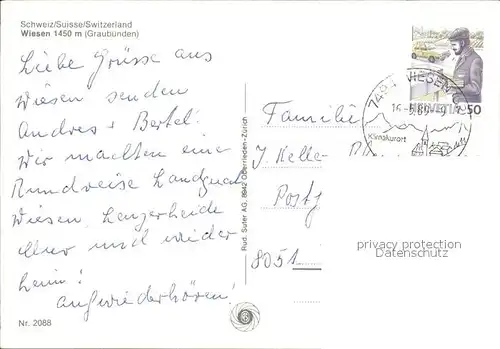 Schweiz/Suisse/Switzerland
Wiesen 1450 m (Graubünden)
Liebe Grüsse aus
Wiesen senden
Andres + Bertel!
Wir machten eine
Rundreise Landquart
Wiesen, Lenzerheide
Chur und wieder
heim!
Auf wiederhören!
Nr. 2088
Rud. Suter AG, 8942 Oberrieden-Zürich
7494 WIESEN
Klimakurort
HELVETIA 50
Familie
J. Keller
Postf
8051
privacy protection
Datenschutz